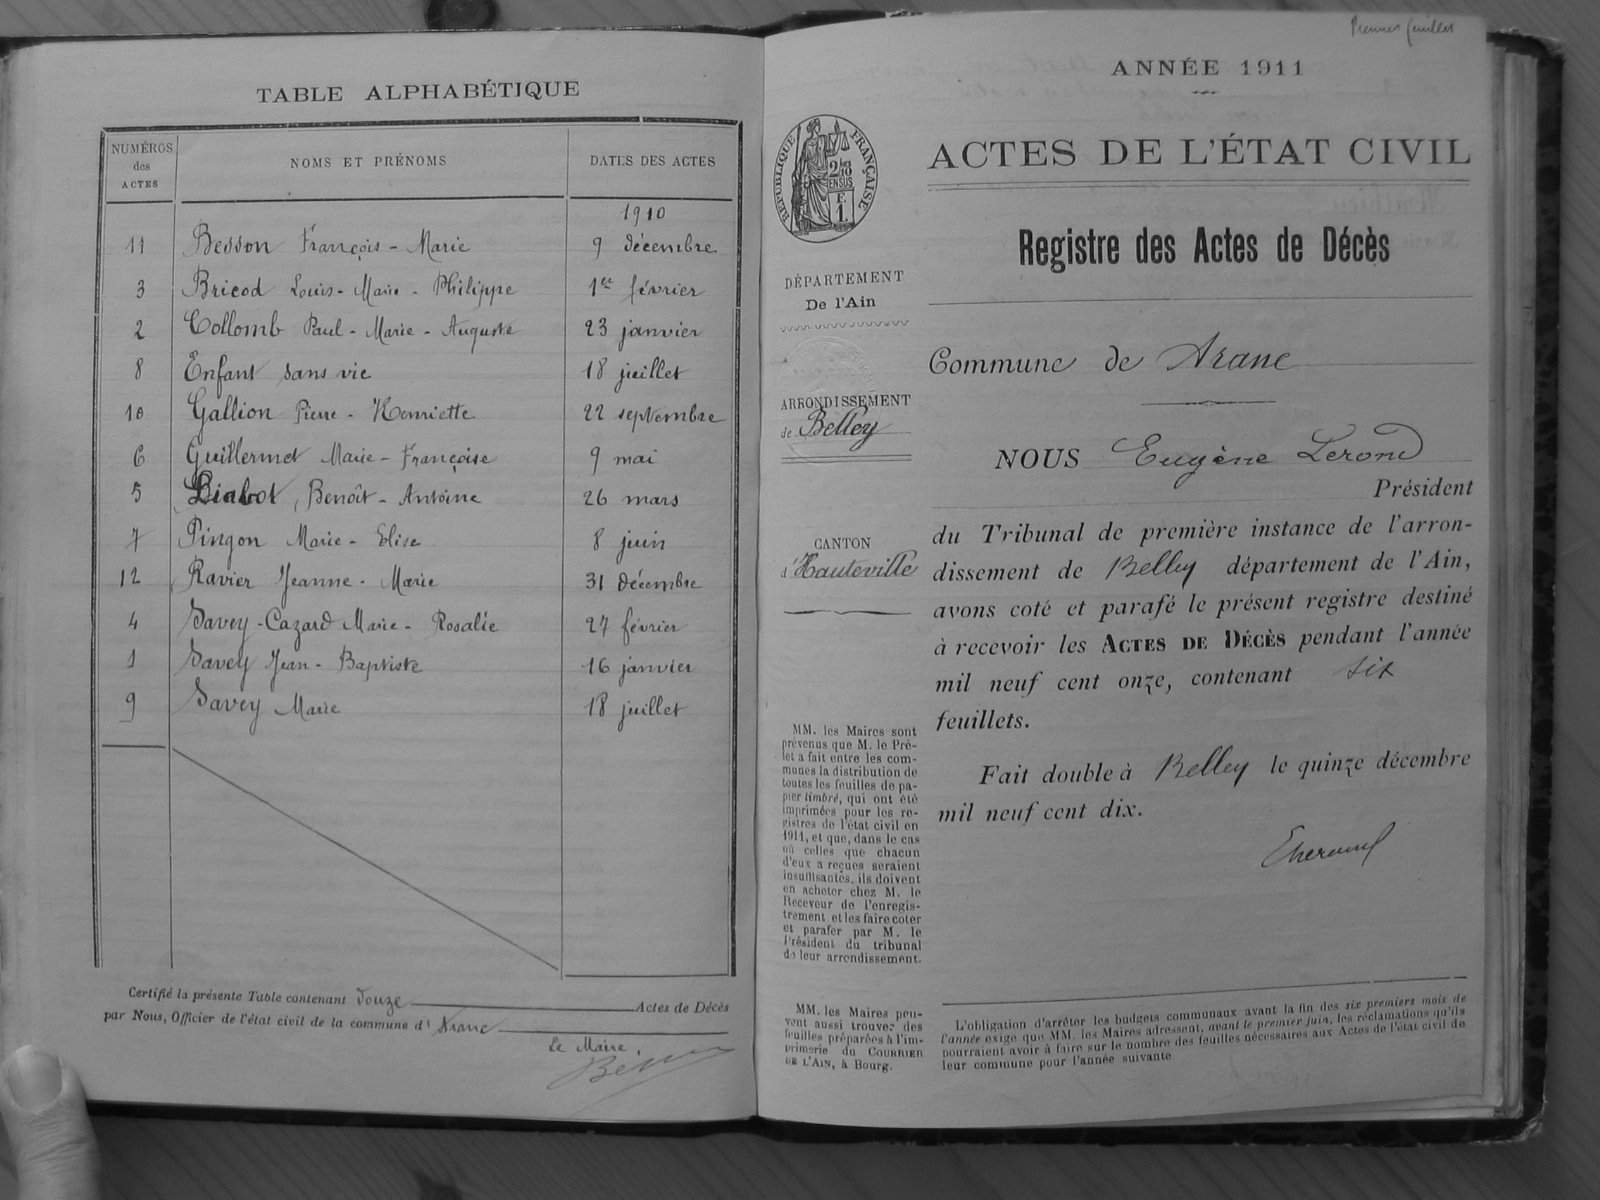 TABLE ALPHABÉTIQUE
NUMÉROS des ACTES NOMS ET PRÉNOMS DATES DES ACTES
1910
11 Besson François-Marie 9 décembre
3 Bricod Louis-Marie-Philippe 1er février
2 Collomb Paul-Marie-Auguste 23 janvier
8 Enfant sans vie 18 juillet
10 Gallion Pierre-Henriette 22 septembre
6 Guillermet Marie-Françoise 9 mai
5 Liabot, Benoît-Antoine 26 mars
7 Pingon Marie-Elise 8 juin
12 Ravier Jeanne-Marie 31 décembre
4 Savey-Cazard Marie-Rosalie 27 février
1 Savey Jean-Baptiste 16 janvier
9 Savey Marie 18 juillet
Certifié la présente Table contenant douze Actes de Décès
par Nous, Officier de l'état civil de la commune d'Arane
Le Maire,
Premier feuillet
ANNÉE 1911
ACTES DE L'ÉTAT CIVIL
Registre des Actes de Décès
RÉPUBLIQUE FRANÇAISE
2/10 EN SUS
F. 1.
DÉPARTEMENT
De l'Ain
ARRONDISSEMENT
de Belley
CANTON
d'Hauteville
MM. les Maires sont
prévenus que M. le Pré-
fet a fait entre les com-
munes la distribution de
toutes les feuilles de pa-
pier timbré, qui ont été
imprimées pour les re-
gistres de l'état civil en
1911, et que, dans le cas
où celles que chacun
d'eux a reçues seraient
insuffisantes, ils doivent
en acheter chez M. le
Receveur de l'enregis-
trement et les faire coter
et parafer par M. le
Président du tribunal
de leur arrondissement.
MM. les Maires peu-
vent aussi trouver des
feuilles préparées à l'im-
primerie du COURRIER
DE L'AIN, à Bourg.
Commune de Arane
NOUS Eugène Lerond
Président
du Tribunal de première instance de l'arron-
dissement de Belley département de l'Ain,
avons coté et parafé le présent registre destiné
à recevoir les ACTES DE DÉCÈS pendant l'année
mil neuf cent onze, contenant six
feuillets.
Fait double à Belley le quinze décembre
mil neuf cent dix.
L'obligation d'arrêter les budgets communaux avant la fin des six premiers mois de
l'année exige que MM. les Maires adressent, avant le premier juin, les réclamations qu'ils
pourraient avoir à faire sur le nombre des feuilles nécessaires aux Actes de l'état civil de
leur commune pour l'année suivante.